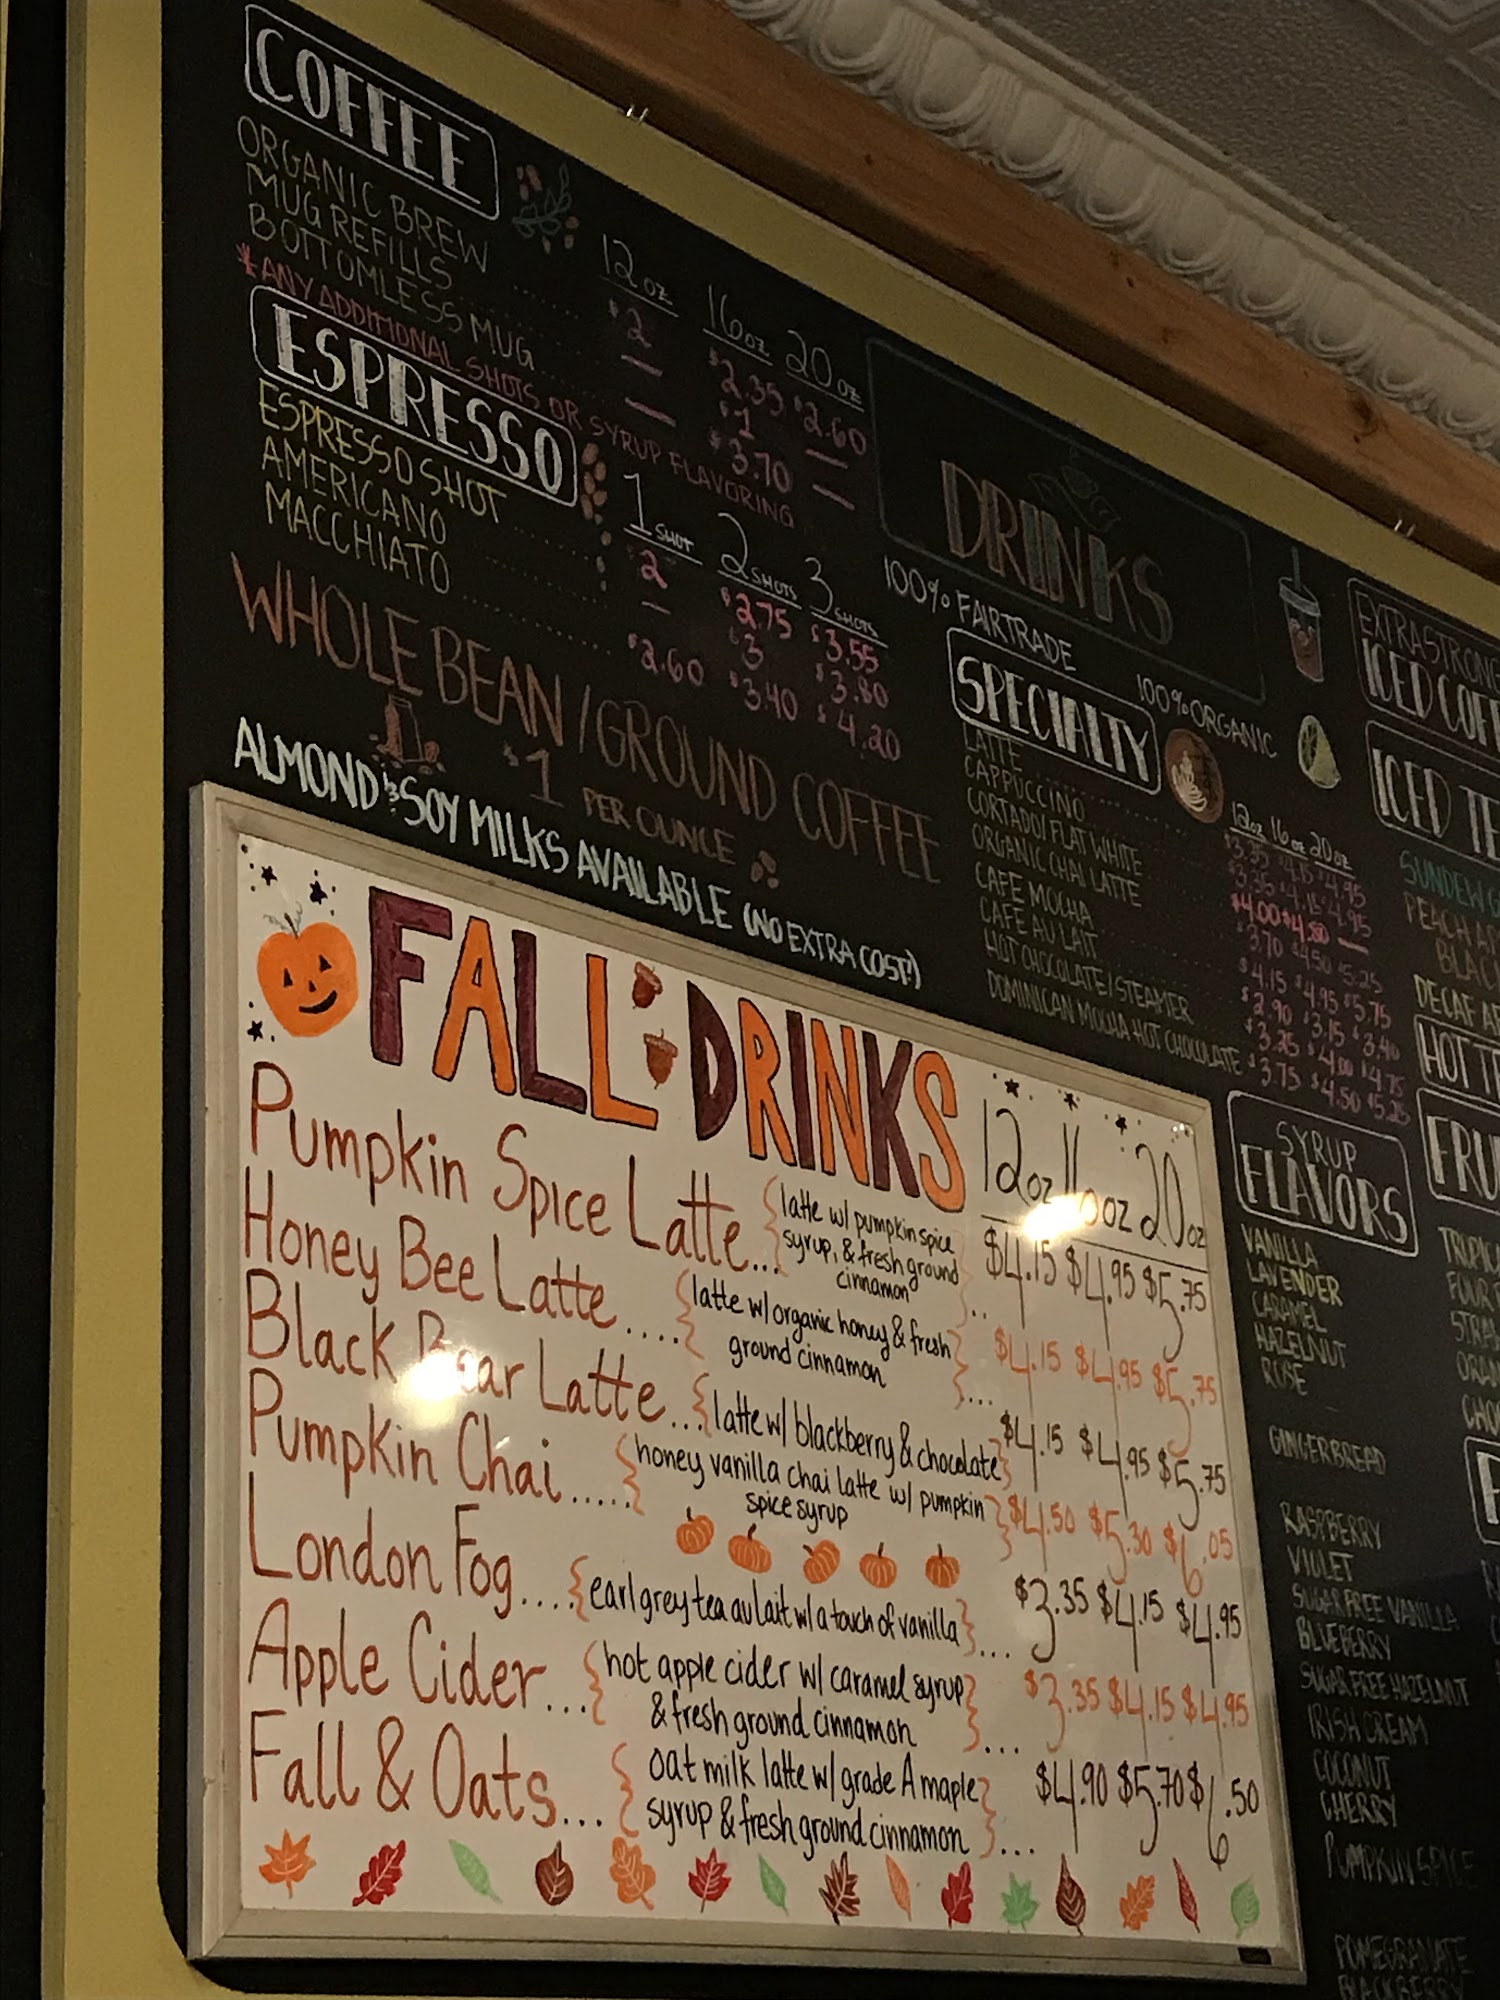 COFFEE
12oz 16oz 20oz
ORGANIC BREW $2 $2.35 $2.60
MUG REFILLS — $1 —
BOTTOMLESS MUG — $3.70 —
*ANY ADDITIONAL SHOTS OR SYRUP FLAVORING
ESPRESSO
1 SHOT 2 SHOTS 3 SHOTS
ESPRESSO SHOT 2 $2.75 $3.55
AMERICANO — $3 $3.80
MACCHIATO $2.60 $3.40 $4.20
WHOLE BEAN / GROUND COFFEE
$1 PER OUNCE
ALMOND & SOY MILKS AVAILABLE (NO EXTRA COST!)
DRINKS
100% FAIRTRADE
100% ORGANIC
SPECIALTY
12oz 16oz 20oz
LATTE $3.35 $4.15 $4.95
CAPPUCCINO $3.35 $4.15 $4.95
CORTADO/ FLAT WHITE $4.00 $4.80 —
ORGANIC CHAI LATTE $3.70 $4.50 $5.25
CAFE MOCHA $4.15 $4.95 $5.75
CAFE AU LAIT $2.90 $3.15 $3.40
HOT CHOCOLATE / STEAMER $3.25 $4.00 $4.75
DOMINICAN MOCHA HOT CHOCOLATE $3.75 $4.50 $5.25
FALL DRINKS
12oz 16oz 20oz
Pumpkin Spice Latte... {latte w/ pumpkin spice
syrup, & fresh ground
cinnamon} .. $4.15 $4.95 $5.75
Honey Bee Latte.... {latte w/ organic honey & fresh
ground cinnamon} ... $4.15 $4.95 $5.75
Black Bear Latte... {latte w/ blackberry & chocolate} $4.15 $4.95 $5.75
Pumpkin Chai..... {honey vanilla chai latte w/ pumpkin
spice syrup} $4.50 $5.30 $6.05
London Fog.... {earl grey tea au lait w/ a touch of vanilla} ... $3.35 $4.15 $4.95
Apple Cider... {hot apple cider w/ caramel syrup
& fresh ground cinnamon} ... $3.35 $4.15 $4.95
Fall & Oats... {oat milk latte w/ grade A maple
syrup & fresh ground cinnamon} ... $4.90 $5.70 $6.50
SYRUP
FLAVORS
VANILLA
LAVENDER
CARAMEL
HAZELNUT
ROSE
GINGERBREAD
RASPBERRY
VIOLET
SUGAR FREE VANILLA
BLUEBERRY
SUGAR FREE HAZELNUT
IRISH CREAM
COCONUT
CHERRY
PUMPKIN SPICE
POMEGRANATE
BLACKBERRY
EXTRA STRONG
ICED COFF
ICED TE
SUNDEW
PEACH
BLAC
DECAF
HOT T
FRU
TROPICA
FOUR
STRA
ORAN
CHO